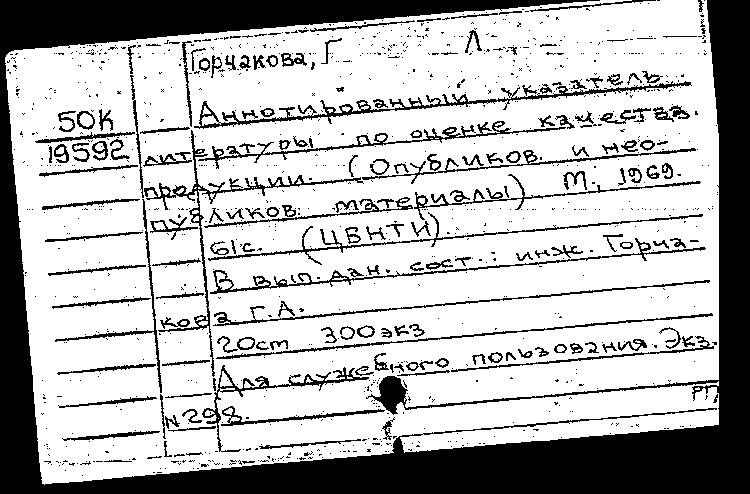 Горчакова, Г Л
50К
19592
Аннотированный указатель
литературы по оценке качества.
продукции. (Опубликов. и нео-
публиков. материалы) М., 1969.
б/с. (ЦБНТИ).
В вып. дан. сост.: инж. Горча-
кова Г.А.
20см 300экз
Для служебного пользования. Экз.
N298.
РП